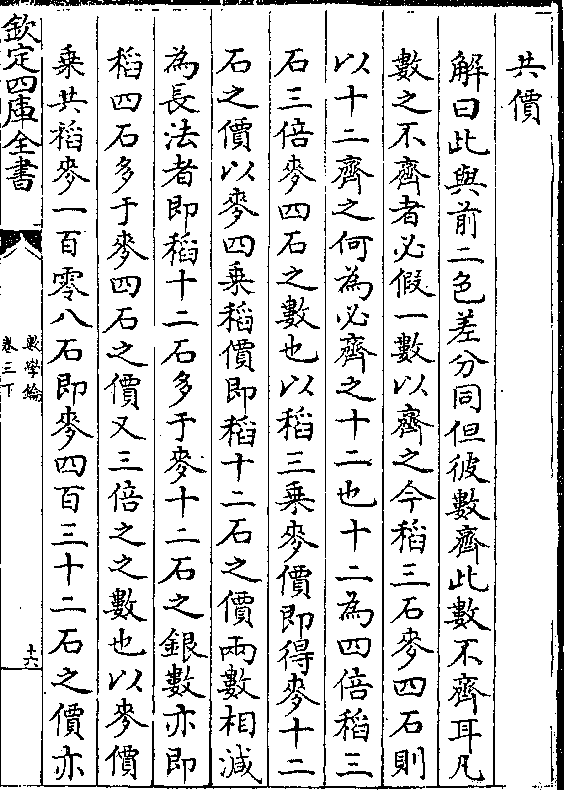 共價
解曰此與前二色差分同但彼數齊此數不齊耳凡
數之不齊者必假一數以齊之今稻三石麥四石則
以十二齊之何為必齊之十二也十二為四倍稻三
石三倍麥四石之數也以稻三乗麥價即得麥十二
石之價以麥四乗稻價即稻十二石之價兩數相減
為長法者即稻十二石多于麥十二石之銀數亦即
稻四石多于麥四石之價又三倍之之數也以麥價
乗共稻麥一百零八石即麥四百三十二石之價亦
欽定四庫全書
數學鑰
卷三下
十六